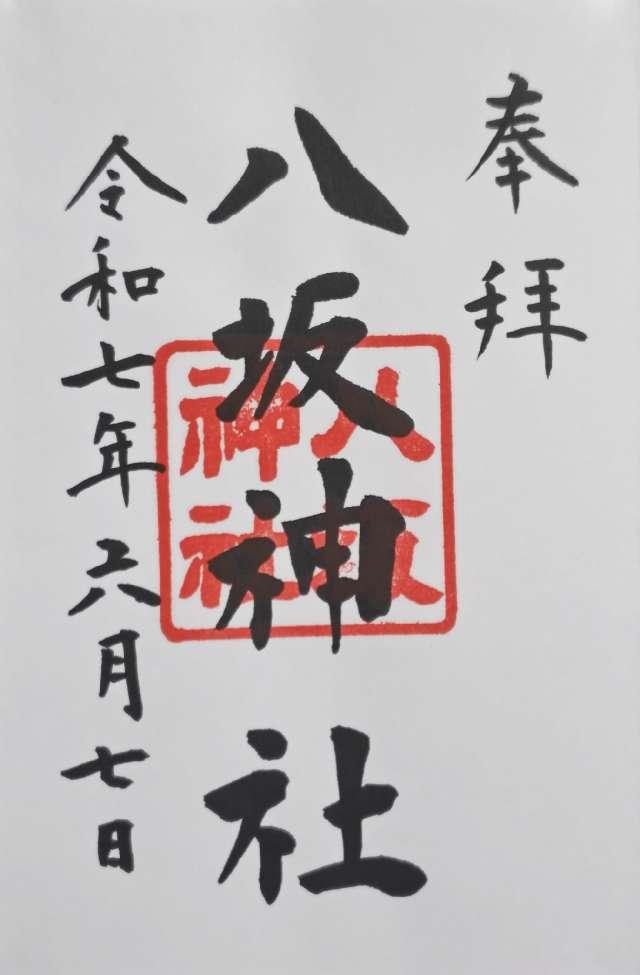 奉拝
八坂神社
八坂神社
令和七年六月七日